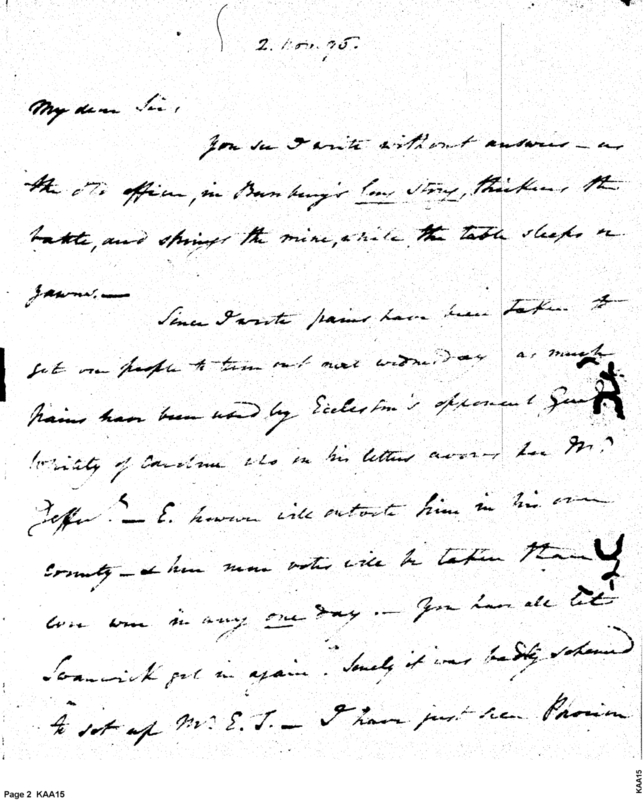 2. Nov. 95.
My dear Sir,
You see I write without answers – as
the old officer, in Bunbury's Long Story, thickens the
battle, and springs the mine, while the table sleeps or
yawns. —
Since I wrote pains have been taken to
get our people to turn out next wednesday as much
pains have been used by Eccleston's opponent Genl
of Caroline who in his letters avows his Mr
Jeffer – E. however will outvote him in his own
county – & here more votes will be taken than
ever were in any one day. – You have all let
Swanwick get in again. Surely it was badly schemed
to set up Mr. E. T. – I have just seen Phocion
Page 2 KAA15
KAA15